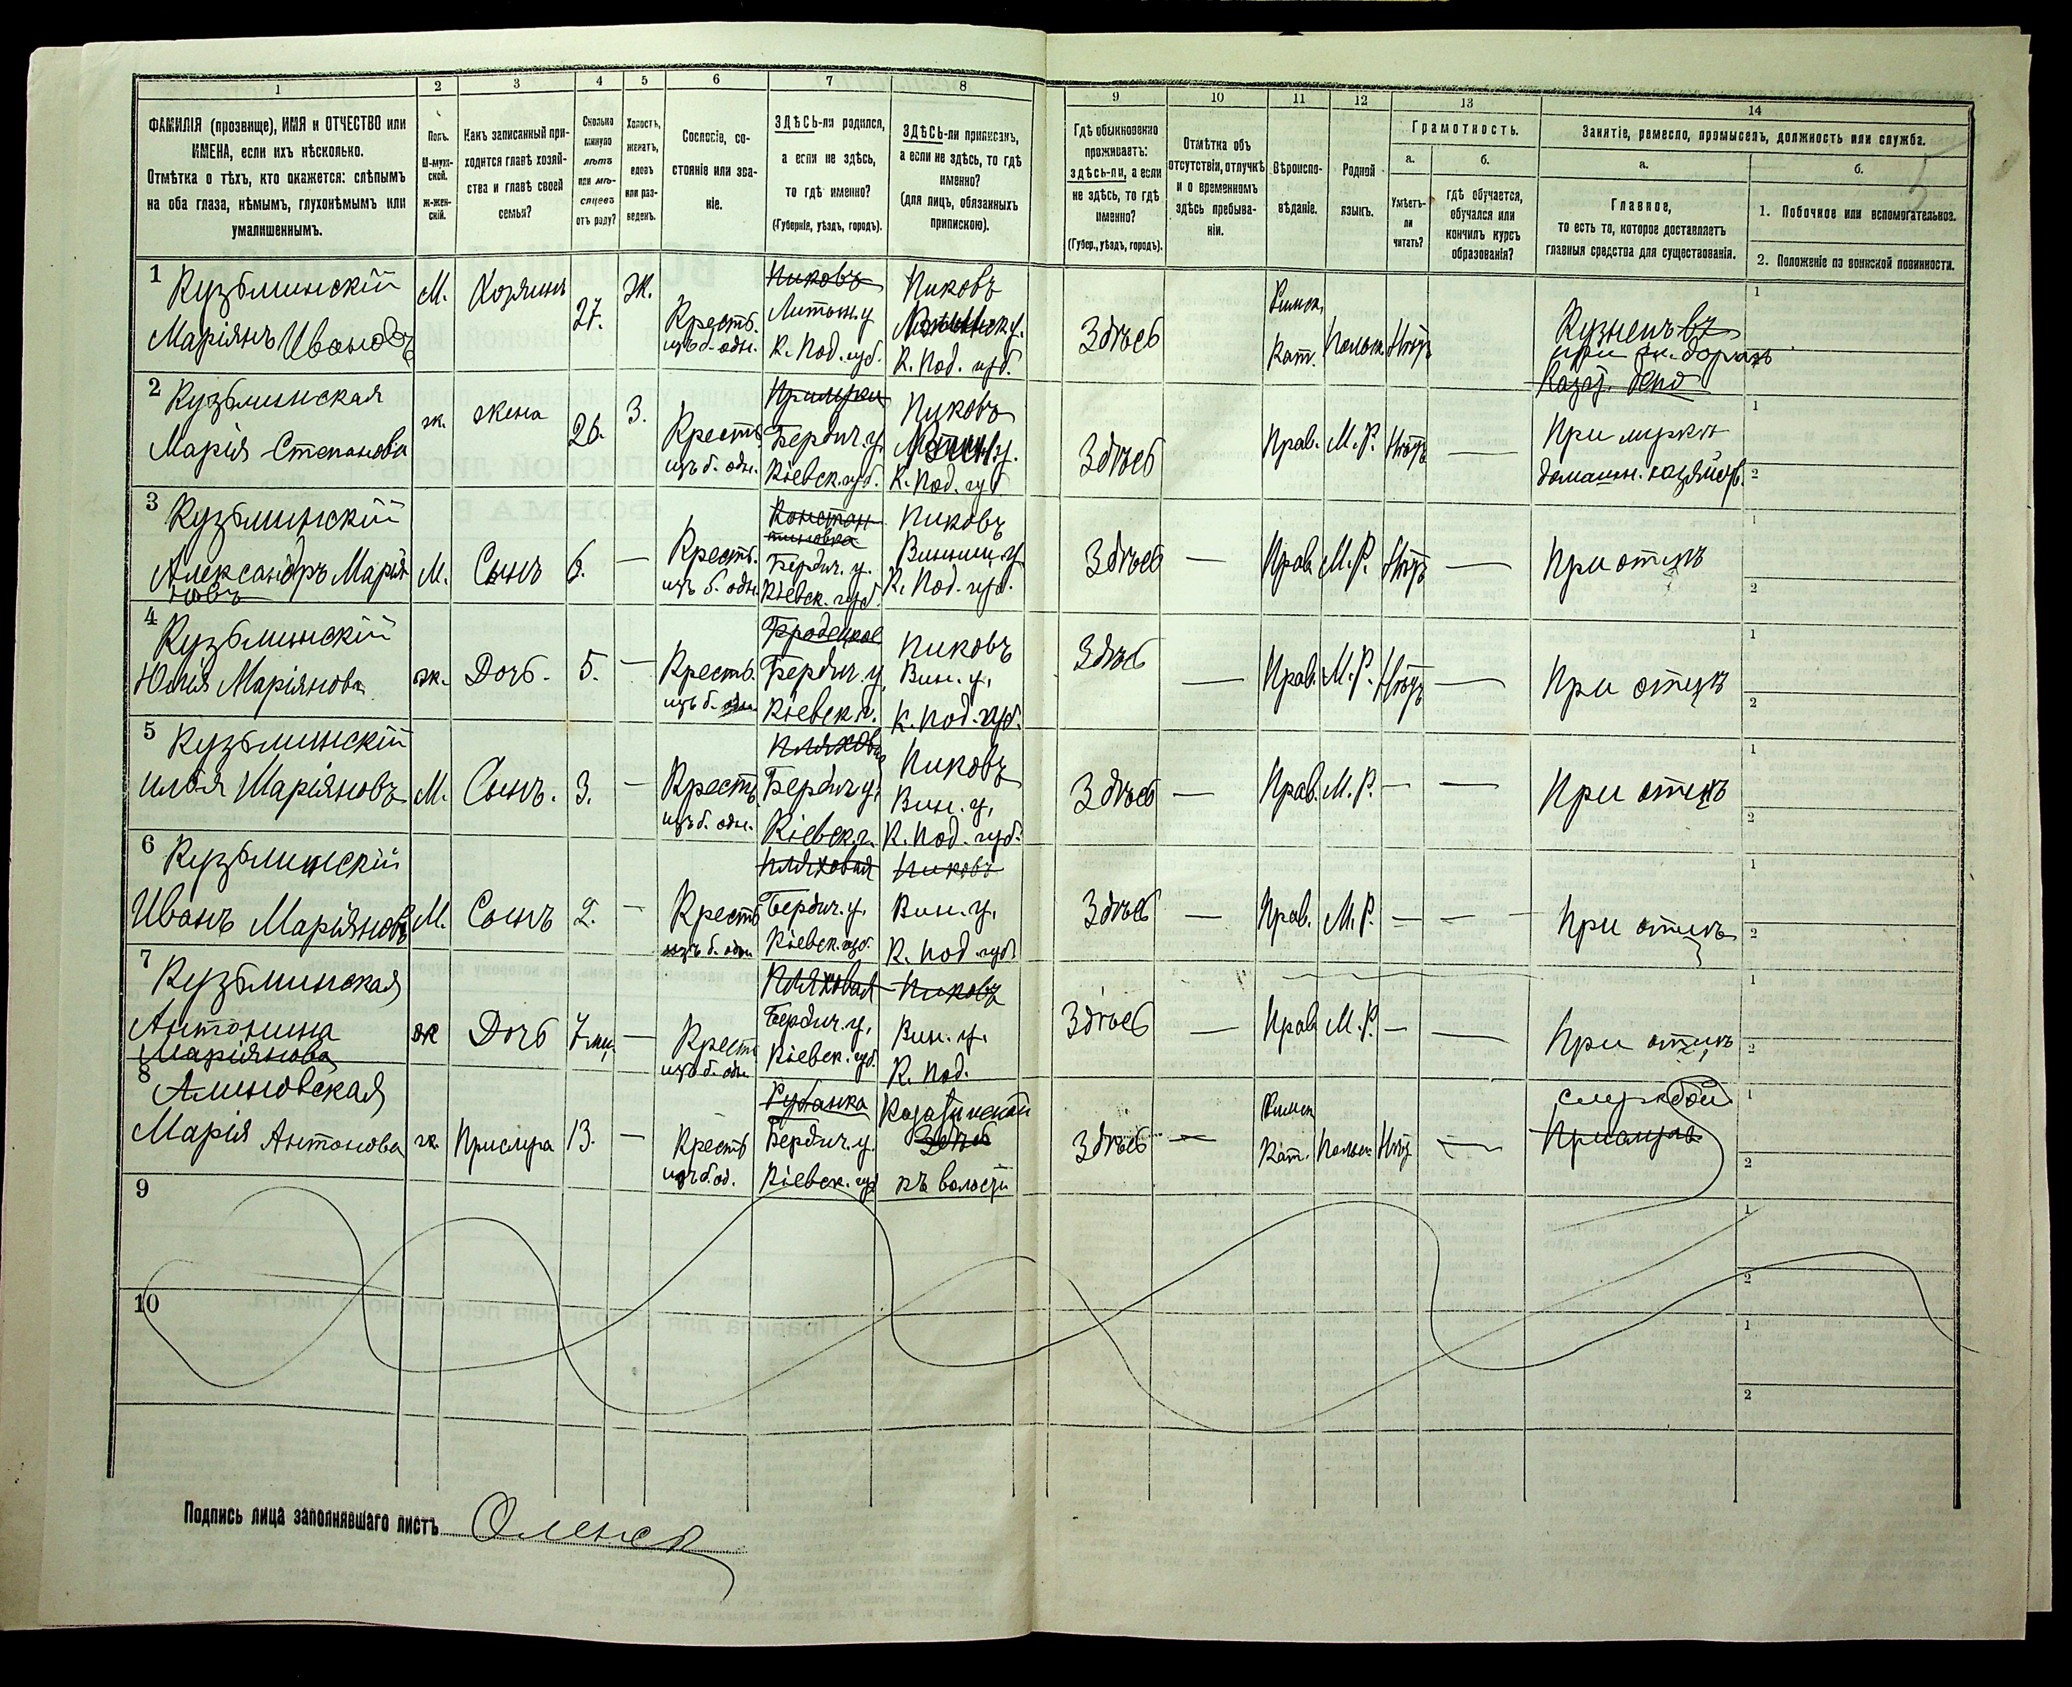 1 2 3 4 5 6 7 8 9 10 11 12 13 14
ФАМИЛІЯ (прозвище), ИМЯ и ОТЧЕСТВО или
ИМЕНА, если ихъ нѣсколько.
Отмѣтка о тѣхъ, кто окажется: слѣпымъ
на оба глаза, нѣмымъ, глухонѣмымъ или
умалишеннымъ.
Полъ.
М-муж-
ской.
Ж-жен-
скій.
Какъ записанный при-
ходится главѣ хозяй-
ства и главѣ своей
семьи?
Сколько
минуло
лѣтъ
или мѣ-
сяцевъ
отъ роду?
Холостъ,
женатъ,
вдовъ
или раз-
веденъ.
Сословіе, со-
стояніе или зва-
ніе.
ЗДѢСЬ-ли родился,
а если не здѣсь,
то гдѣ именно?
(Губернія, уѣздъ, городъ).
ЗДѢСЬ-ли приписанъ,
а если не здѣсь, то гдѣ
именно?
(для лицъ, обязанныхъ
припискою).
Гдѣ обыкновенно
проживаетъ:
здѣсь-ли, а если
не здѣсь, то гдѣ
именно?
(Губер., уѣздъ, городъ).
Отмѣтка объ
отсутствіи, отлучкѣ
и о временномъ
здѣсь пребыва-
ніи.
Вѣроиспо-
вѣданіе.
Родной
языкъ.
Грамотность.
а.
Умѣетъ-
ли
читать?
б.
Гдѣ обучается,
обучался или
кончилъ курсъ
образованія?
Занятіе, ремесло, промыселъ, должность или служба.
а.
Главное,
то есть то, которое доставляетъ
главныя средства для существованія.
б.
1. Побочное или вспомогательное.
2. Положеніе по воинской повинности.
5
1 Кузьминскій
Маріянъ Ивановъ
М.
Хозяинъ
27.
Ж.
Крестъ.
изъ б. одн.
Пиковъ
Литин.у
К. Под. губ.
Пиковъ
К. Под. губ.
Здѣсь
Римск.
Кат.
Польск
Нѣтъ
Кузнецъ
1
2 Кузьминская
Марія Степанова
ж.
жена
26.
З.
Крестъ.
изъ б. одн.
Бердич.у.
Кіевск.губ.
Пиковъ
К. Под. губ
Здѣсь
Прав.
М.Р.
Нѣтъ
При мужѣ
домашн. хозяйст.
1
2
3 Кузьминскій
Александръ Марія
новъ
М.
Сынъ
6.
Крестъ.
изъ б. одн.
Констан
тиновка
Бердич. у.
Кіевск. губ.
Пиковъ
Винниц.у.
К. Под. губ.
Здѣсь
Прав
М.Р.
Нѣтъ
При отцѣ
1
2
4 Кузьминскій
Юлія Маріянова
ж.
Дочь.
5.
Крестъ.
изъ б. одн.
Городецкое
Бердич.у,
Кіевск г.
Пиковъ
Вин. у,
К. Под. губ.
Здѣсь
Прав.
М.Р.
Нѣтъ
При отцѣ
1
2
5 Кузьминскій
Илья Маріяновъ
М.
Сынъ.
3.
Крестъ
изъ б. одн.
Бердич у,
Кіевск.г.
Пиковъ
Вин. у,
К. Под. губ.
Здѣсь
Прав.
М.Р.
При отцѣ
1
2
6 Кузьминскій
Иванъ Маріяновъ
М.
Сынъ
2.
Крестъ
изъ б. одн
Пляховая
Бердич. у,
Кіевск. губ.
Пиковъ
Вин. у,
К. Под губ
Здѣсь
Прав.
М.Р.
При отцѣ
1
2
7 Кузьминская
Антонина
Маріянова
ж
Дочь
7 мц.
Крестъ
изъ б. одн
Пляховая
Бердич. у,
Кіевск. губ.
Пиковъ
Вин. у.
К. Под.
Здѣсь
Прав
М.Р.
При отцѣ
1
2
8 Алиновская
Марія Антонова
ж.
Прислуга
13.
Крестъ
изъ б. од.
Бердич. у.
Кіевск. губ
Казатинской
Здѣсь
волости
Здѣсь
Римск
Кат.
Польск
Нѣтъ
Прислуга
1
2
9
1
2
10
1
2
Подпись лица заполнявшаго листъ